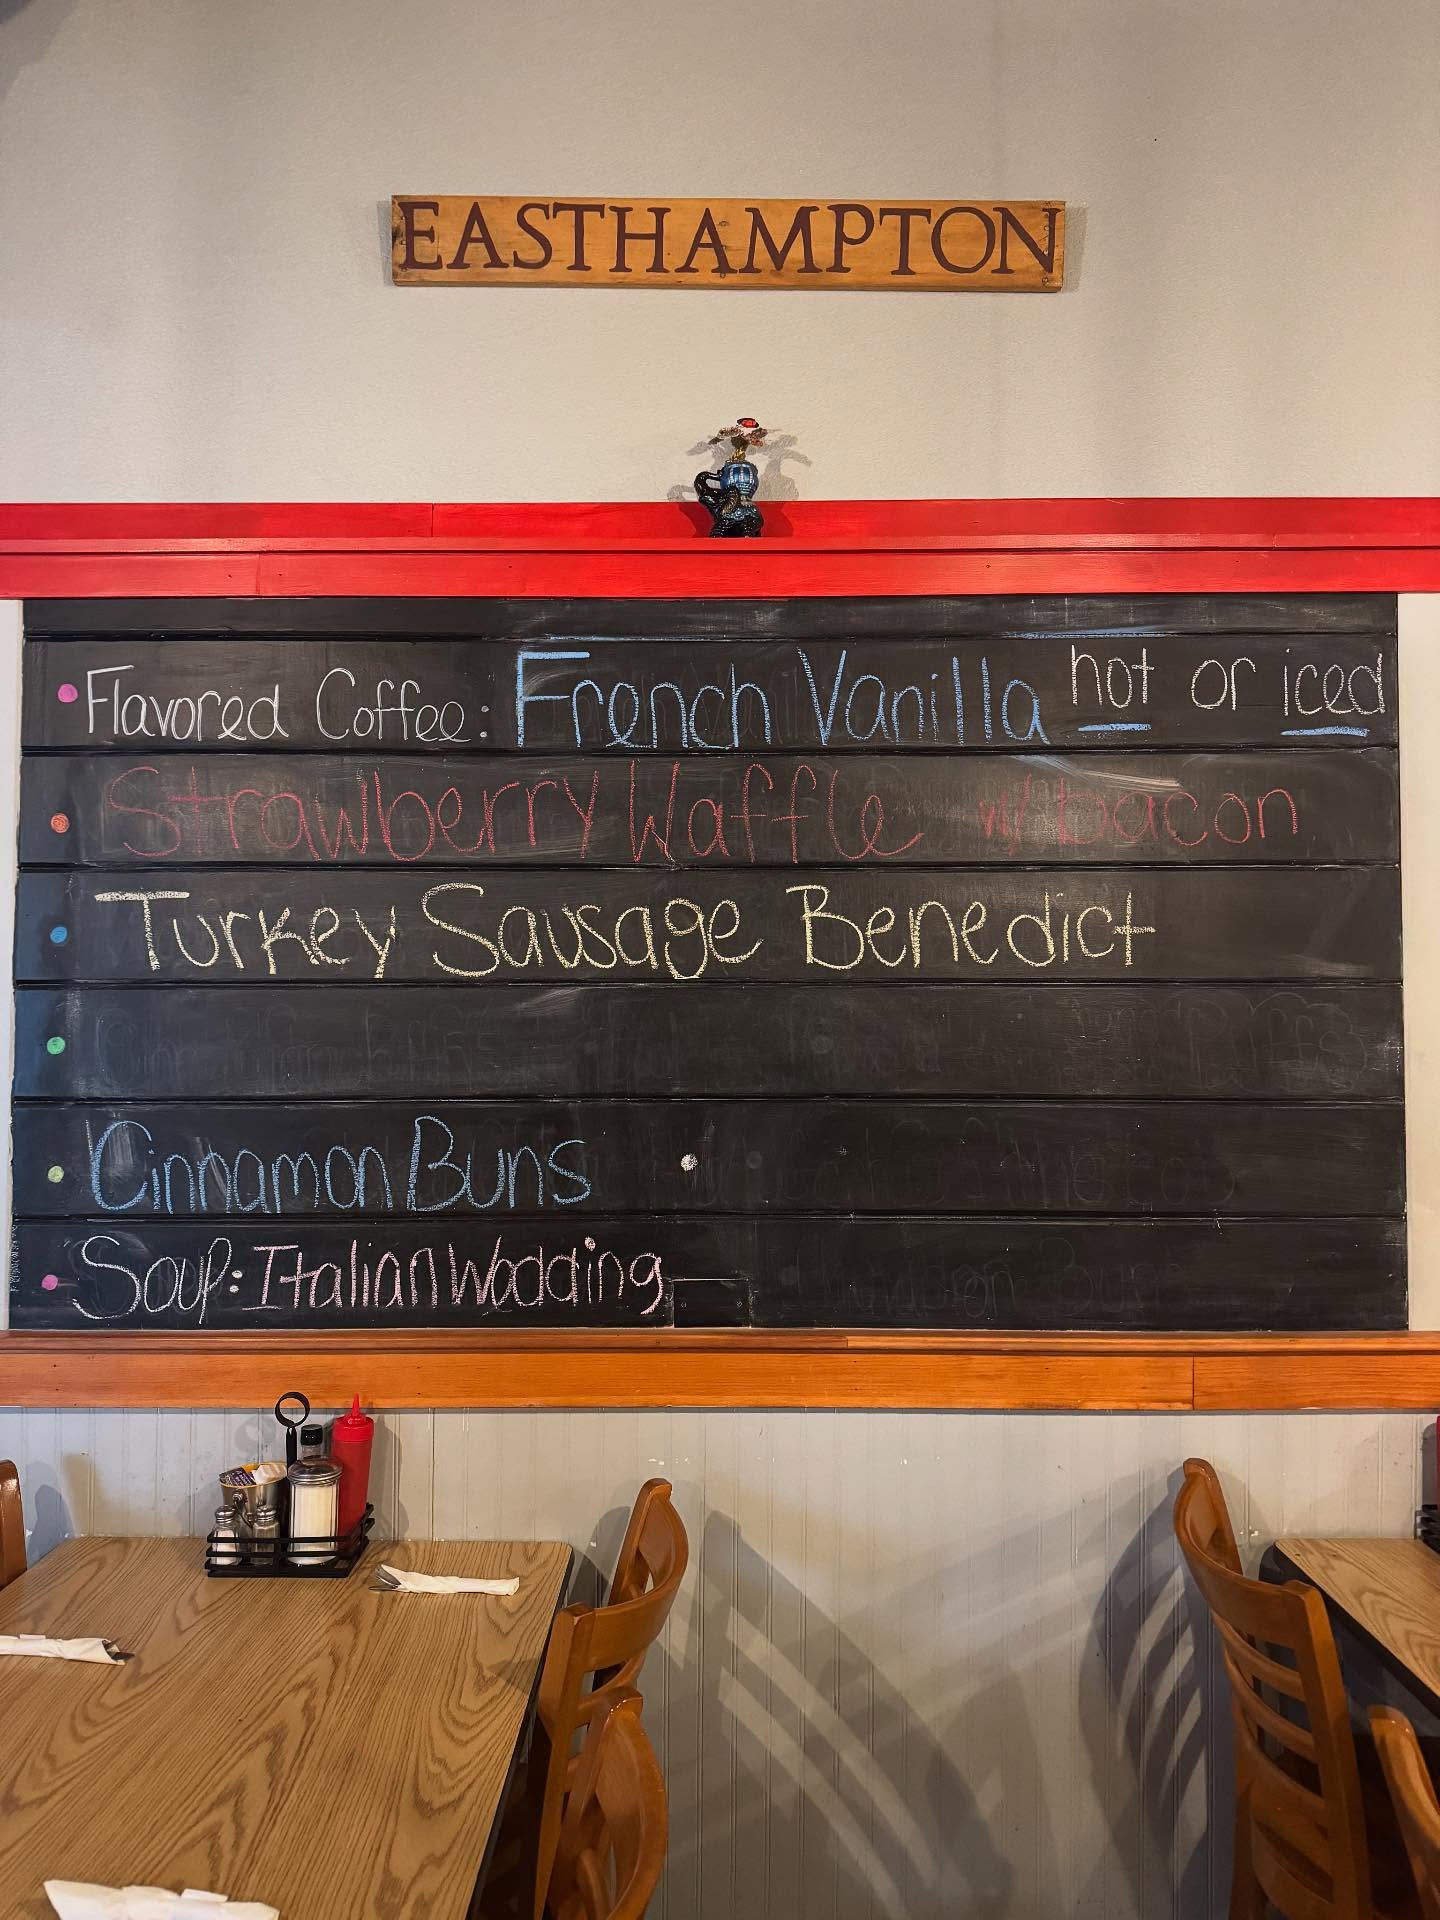 EASTHAMPTON
Flavored Coffee: French Vanilla hot or iced
Strawberry Waffle w/ bacon
Turkey Sausage Benedict
Cinnamon Buns
Soup: Italian Wedding